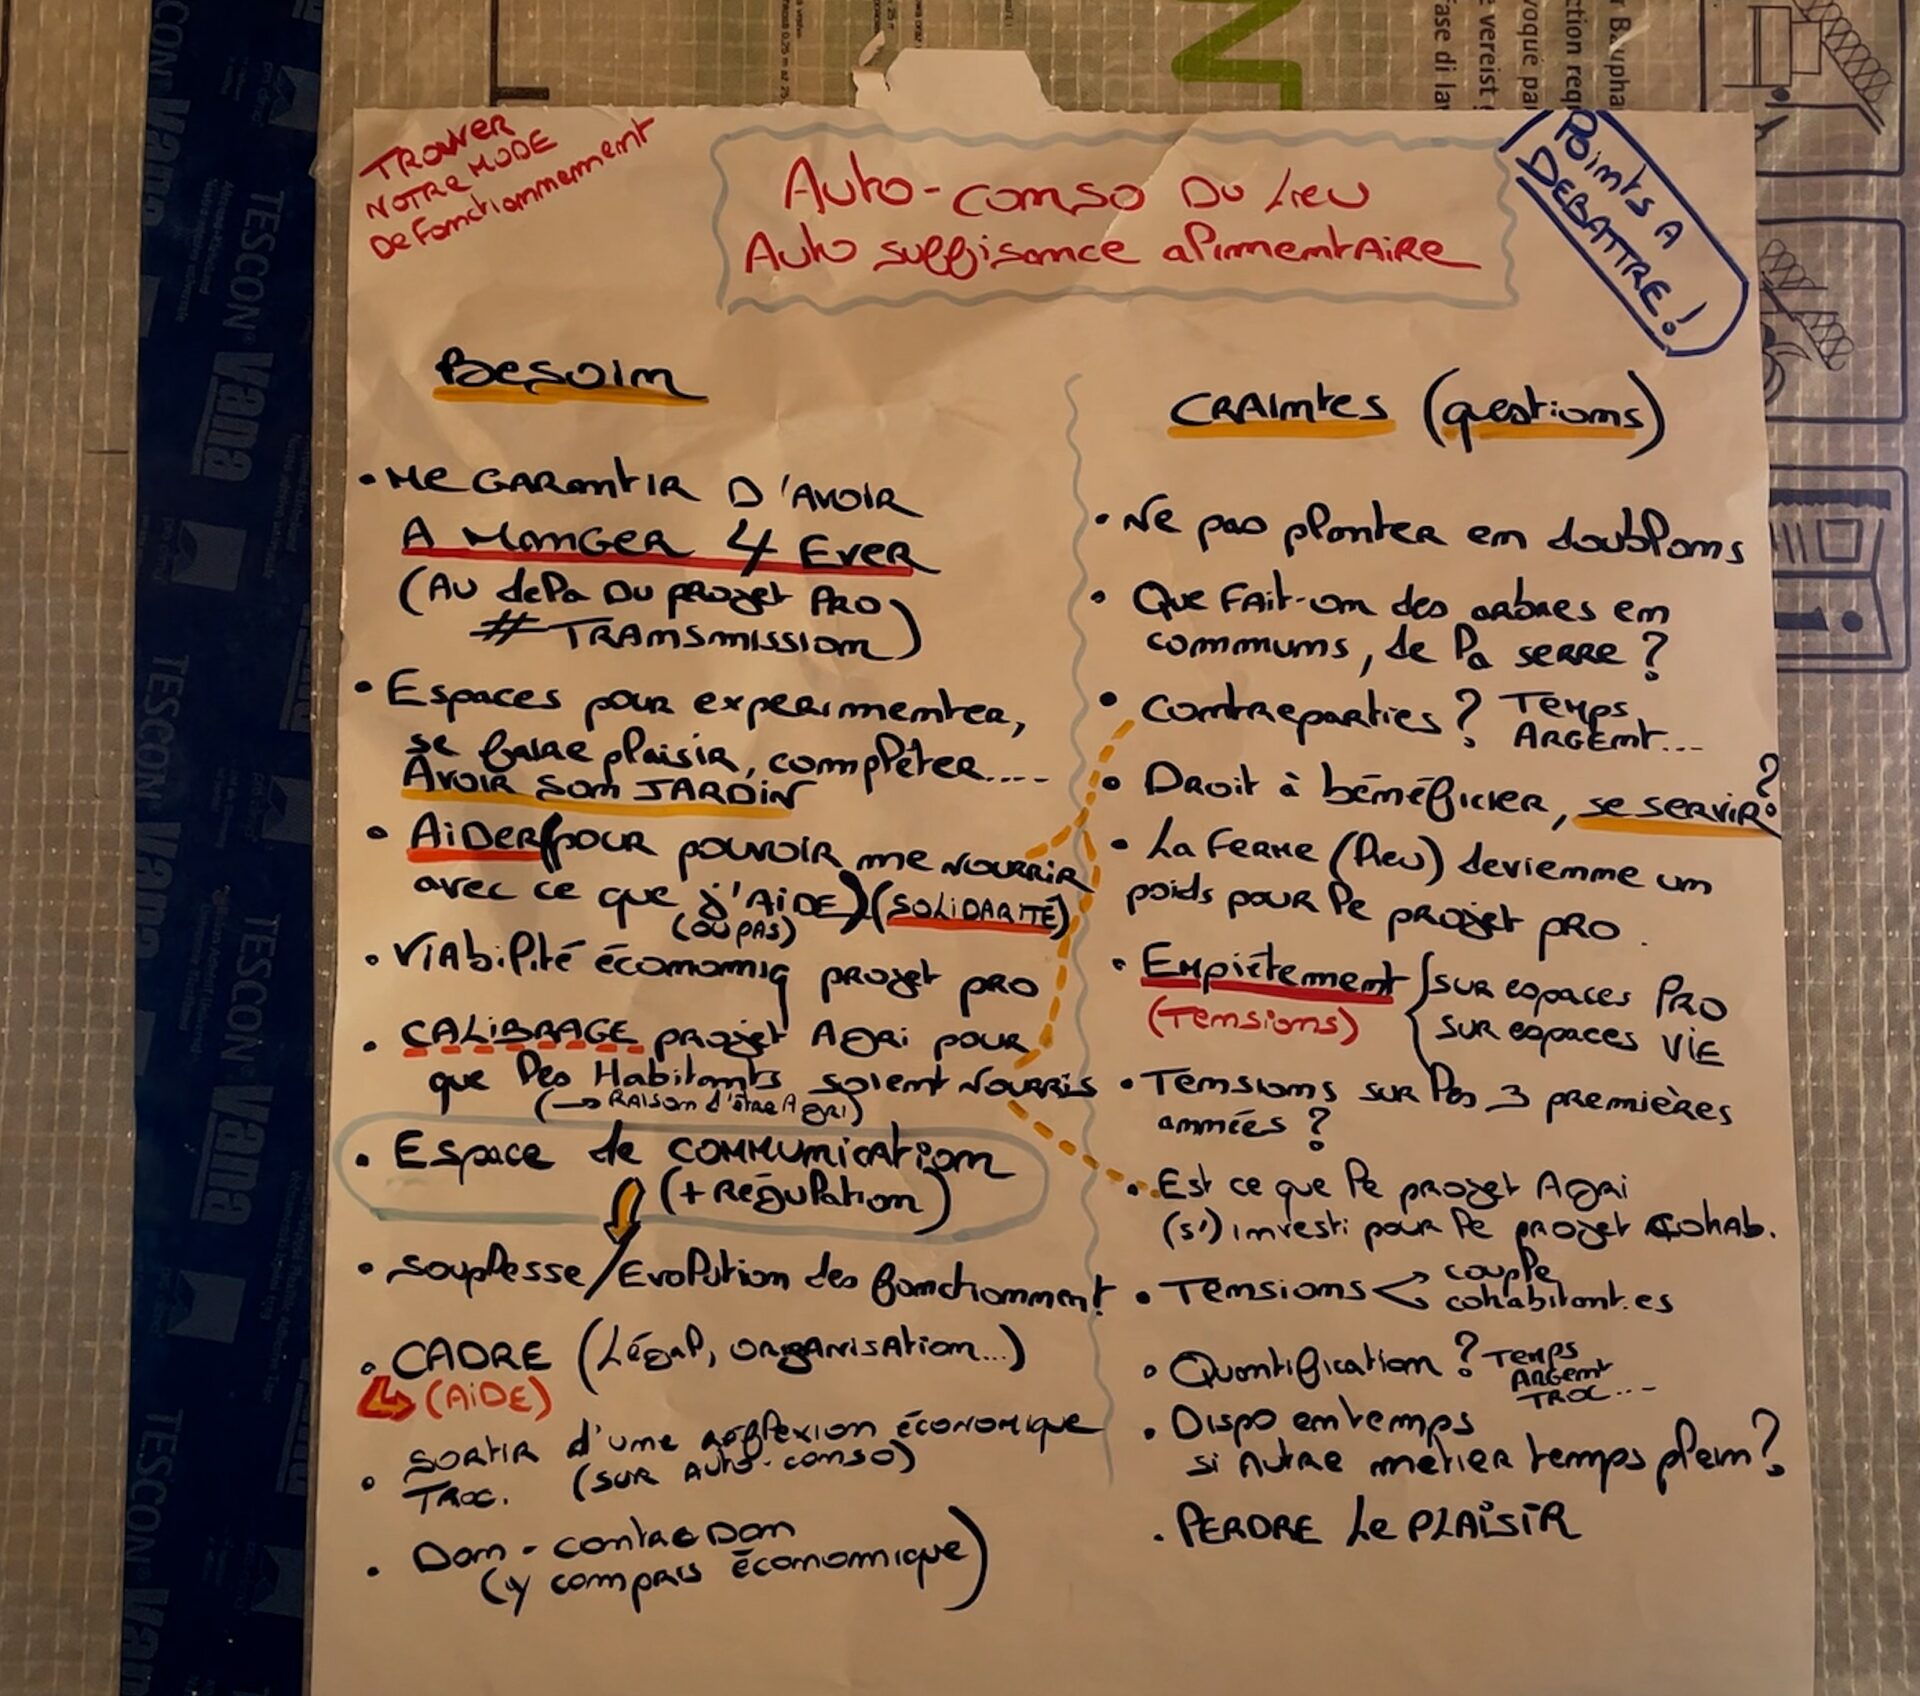 TROUVER
NOTRE MODE
De Fonctionnement
Auto-conso Du Lieu
Auto suffisance alimentaire
Points A
DEBATTRE!
Besoin
• Me GARantir D'AVOIR
A MANGER 4 EVER
(Au delà Du projet PRO
# TRANSMISSION)
• Espaces pour experimenter,
se faire plaisir, compléter....
AVOIR son JARDIN
• AiDER (pour pouvoir me NOURRIR
avec ce que j'AiDE) (SOLiDARITÉ)
(OU PAS)
• Viabilité économiq projet pro
• CALiBRAGE projet Agri pour
que les Habitants soient Nourris
(→ Raison d'être Agri)
• Espace de communication
(+ Régulation)
• Souplesse / Evolution des fonctionnment
• CADRE (Légal, organisation...)
(AiDE)
• SORTIR d'une réflexion économique
TROC. (SUR AUTO-conso)
• Don - contre Don
(y compris économique)
CRAintes (questions)
• Ne pas planter en doublons
• Que Fait-on des arbres en
communs, de la serre ?
• Contreparties ? Temps
ARGEnt...
• Droit à bénéficier, se servir ?
• La Ferme (lieu) devienne un
poids pour le projet pro.
• Empiètement { sur espaces PRO
(Tensions) sur espaces VIE
• Tensions sur les 3 premières
années ?
• Est ce que le projet Agri
(s') investi pour le projet Cohab.
• Tensions < couple
cohabitant.es
• Quantification ? Temps
ARGEnt
TROC...
• Dispo en temps
si Autre metier temps plein ?
• PERDRE Le PLAiSiR
TESCON® Vana
TESCON® Vana
TESCON® Vana
TESCON® Vana